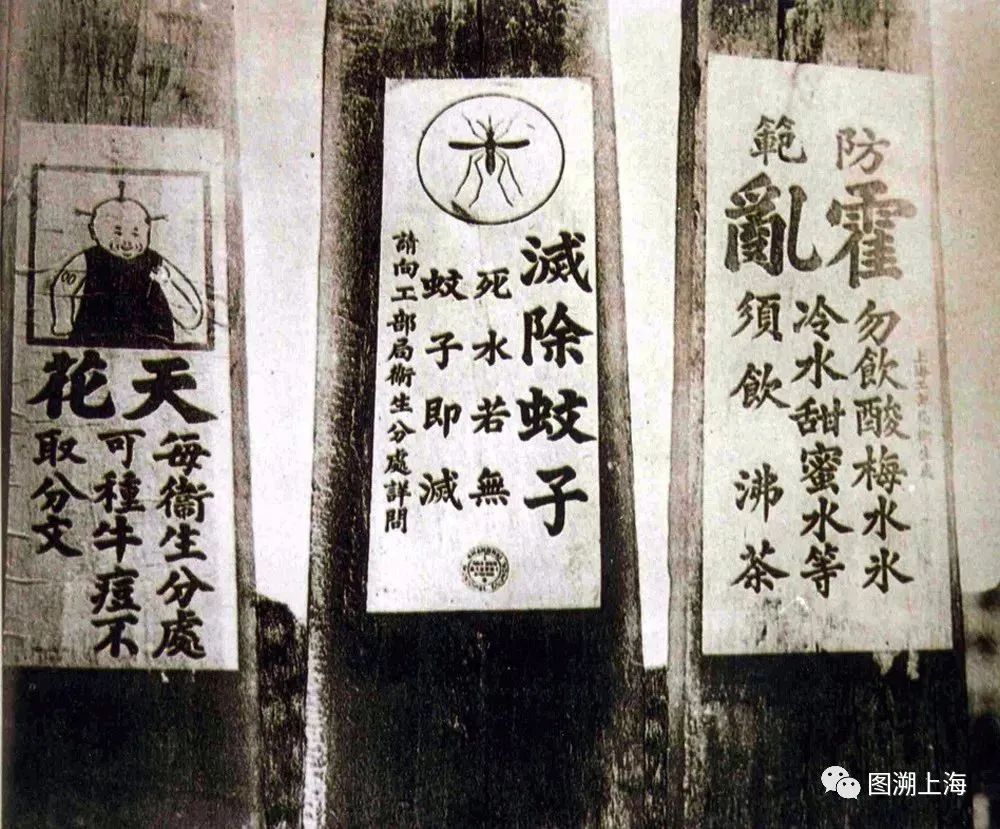 天花
每衞生分處
可種牛痘不
取分文
滅除蚊子
死水若無
蚊子即滅
請向工部局衞生分處詳問
防範
霍亂
勿飲酸梅水氷
冷水甜蜜水等
須飲沸茶
图溯上海